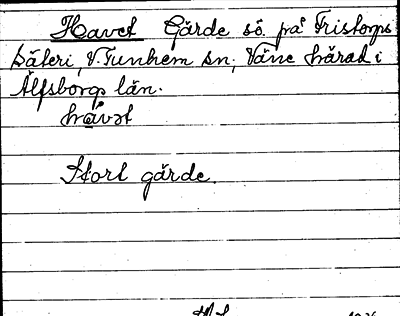 Havet Gärde sö. på Fristorps
säteri, V. Tunhem sn; Väne härad i
Älfsborgs län.
håvət
Stort gärde.